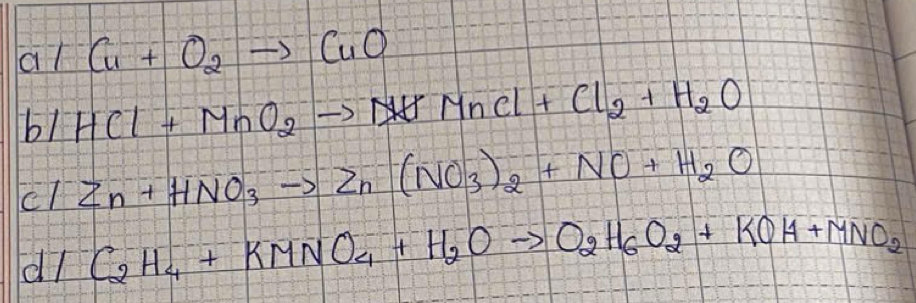 a/ Cu + O₂ → CuO
b/ HCl + MnO₂ → MnCl + Cl₂ + H₂O
c/ Zn + HNO₃ → Zn (NO₃)₂ + NO + H₂O
d/ C₂H₄ + KMNO₄ + H₂O → O₂H₆O₂ + KOH + MNO₂